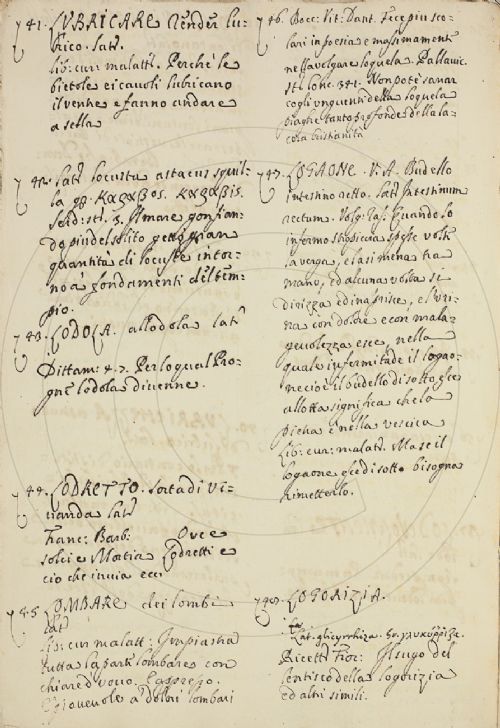 741. LUBRICARE Render lu-
brico. lat.
lib: cur: malatt: Perchè le
bietole e i cavoli lubricano
il ventre e fanno andare
a sella
742. lat: locusta astacus squil-
la gr. καραβος. καραβις.
Serd: st: 3. Il mare gonfian-
do più del solito gettò gran
quantità di locuste intor-
no a fondamenti del tem-
pio.
743. LODOLA. allodola lat:
Dittam: 4.7. Per lo qual Pro-
gne lodola divenne.
744. LODRETTO. sorta di vi-
vanda lat:
Franc: Barb: Ove e
solci e Mortia Lodretti e
ciò che invia ecc:
745 LOMBARE dei lombi
lat:
lib: cur: malatt: Impiastra
tutta la parte lombare con
chiare d'uovo. Lappresso.
È giovevole a' dolori lombari
746. Bocc: Vit: Dant. Fece più sco-
lari in poesia e massimamente
nella volgare loquela. Pallavic.
st: Conc: 341. Non potè sanar
cogli unguenti della loquela
piaghe tanto profonde della la-
cera cristianità
747. LOGAONE. V.A. Budello
intestino retto. lat: Intestinum
rectum. Volg: Ras: Quando lo
infermo stropiccia spesse volte
la verga, e lasimena tra
mano, ed alcuna volta si
dirizza ed inasprisce, e l'uri-
na con dolore e con mala-
gevolezza esce, nella
quale infermitade il logao-
ne cioè il budello di sotto esce
allotta significa che la
pietra è nella vescica
Lib: cur: malatt: Ma se il
logaone esce di sotto bisogna
rimetterlo.
748. LOGORIZIA.
Lat. glicyrrhiza. Gr. γλυκύῤῥιζα.
Ricett: Fior: Il sugo del
lentisco della logorizia
ed altri simili.